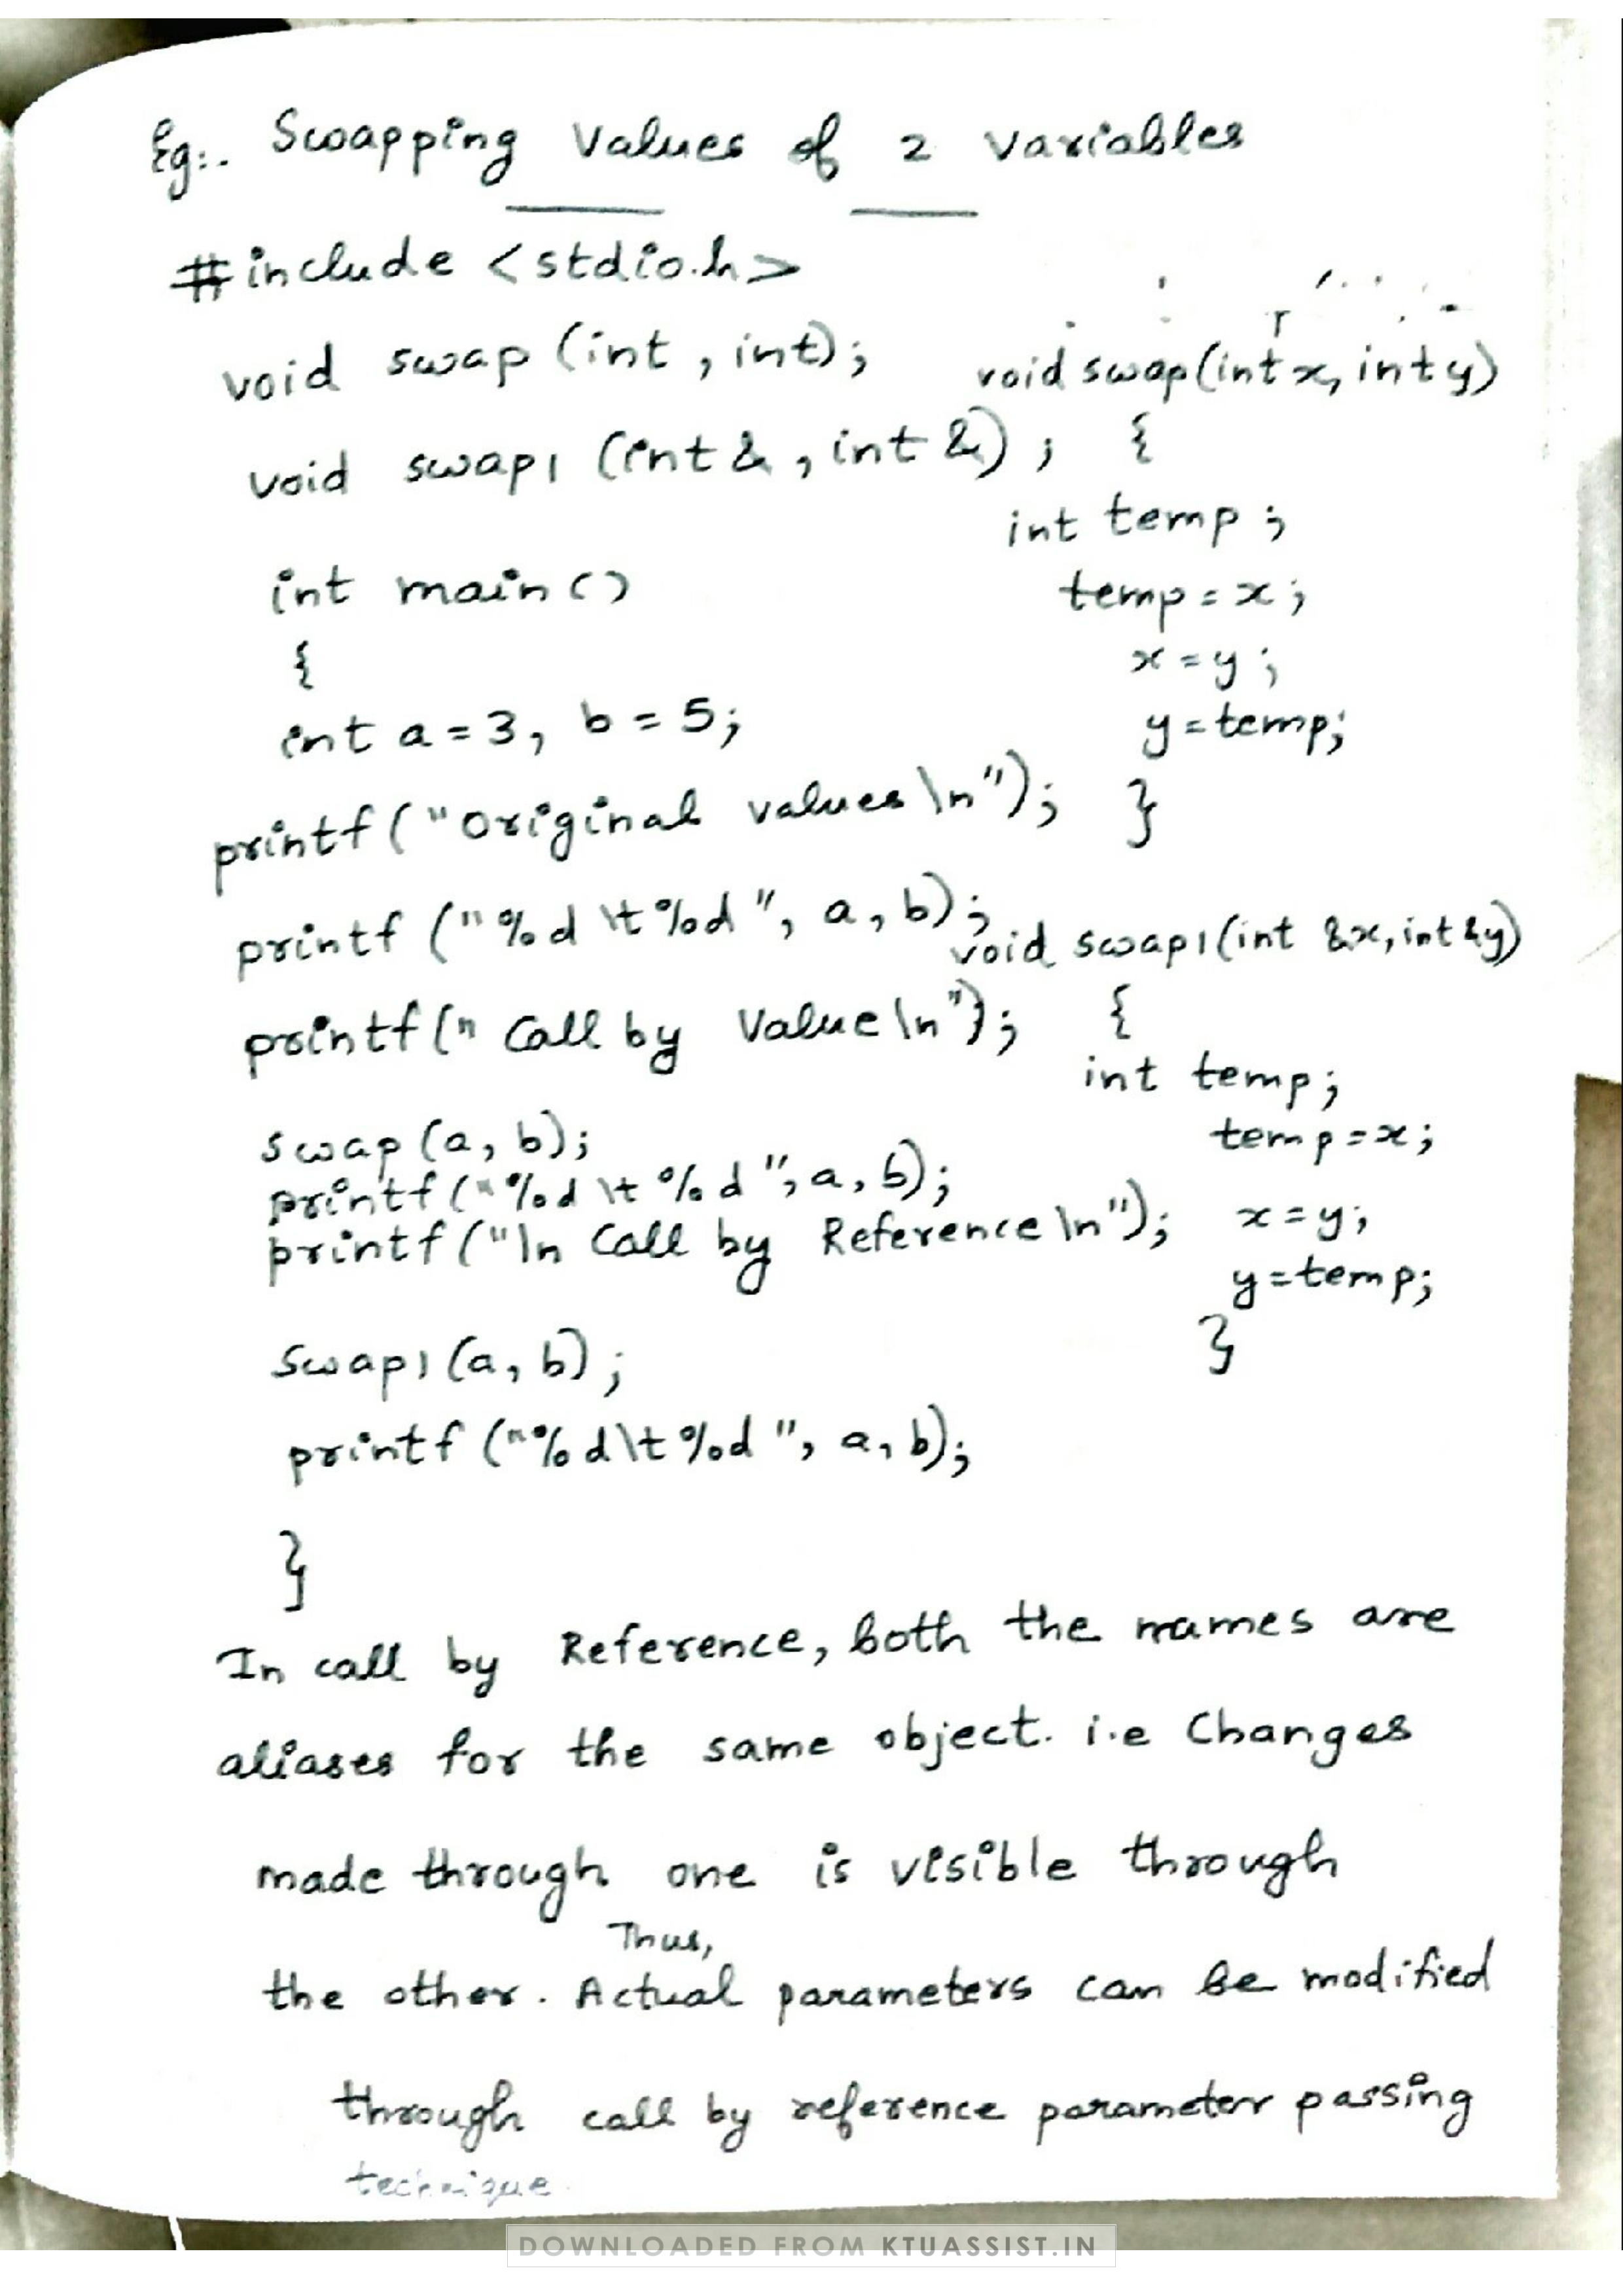 Eg:. Swapping Values of 2 variables
#include <stdio.h>
void swap (int , int);
void swap1 (int& , int &) ;
int main()
{
int a = 3, b = 5;
printf("Original values \n");
printf ("%d \t %d", a, b);
printf(" Call by Value \n");
swap (a, b);
printf ("%d \t %d", a, b);
printf ("\n Call by Reference \n");
swap1 (a, b) ;
printf ("%d\t %d ", a, b);
}
void swap(int x, int y)
{
int temp ;
temp = x ;
x = y ;
y = temp;
}
void swap1(int &x, int &y)
{
int temp;
temp = x;
x = y;
y = temp;
}
In call by Reference, both the names are
aliases for the same object. i.e Changes
made through one is visible through
Thus,
the other. Actual parameters can be modified
through call by reference parameter passing
technique.
DOWNLOADED FROM KTUASSIST.IN